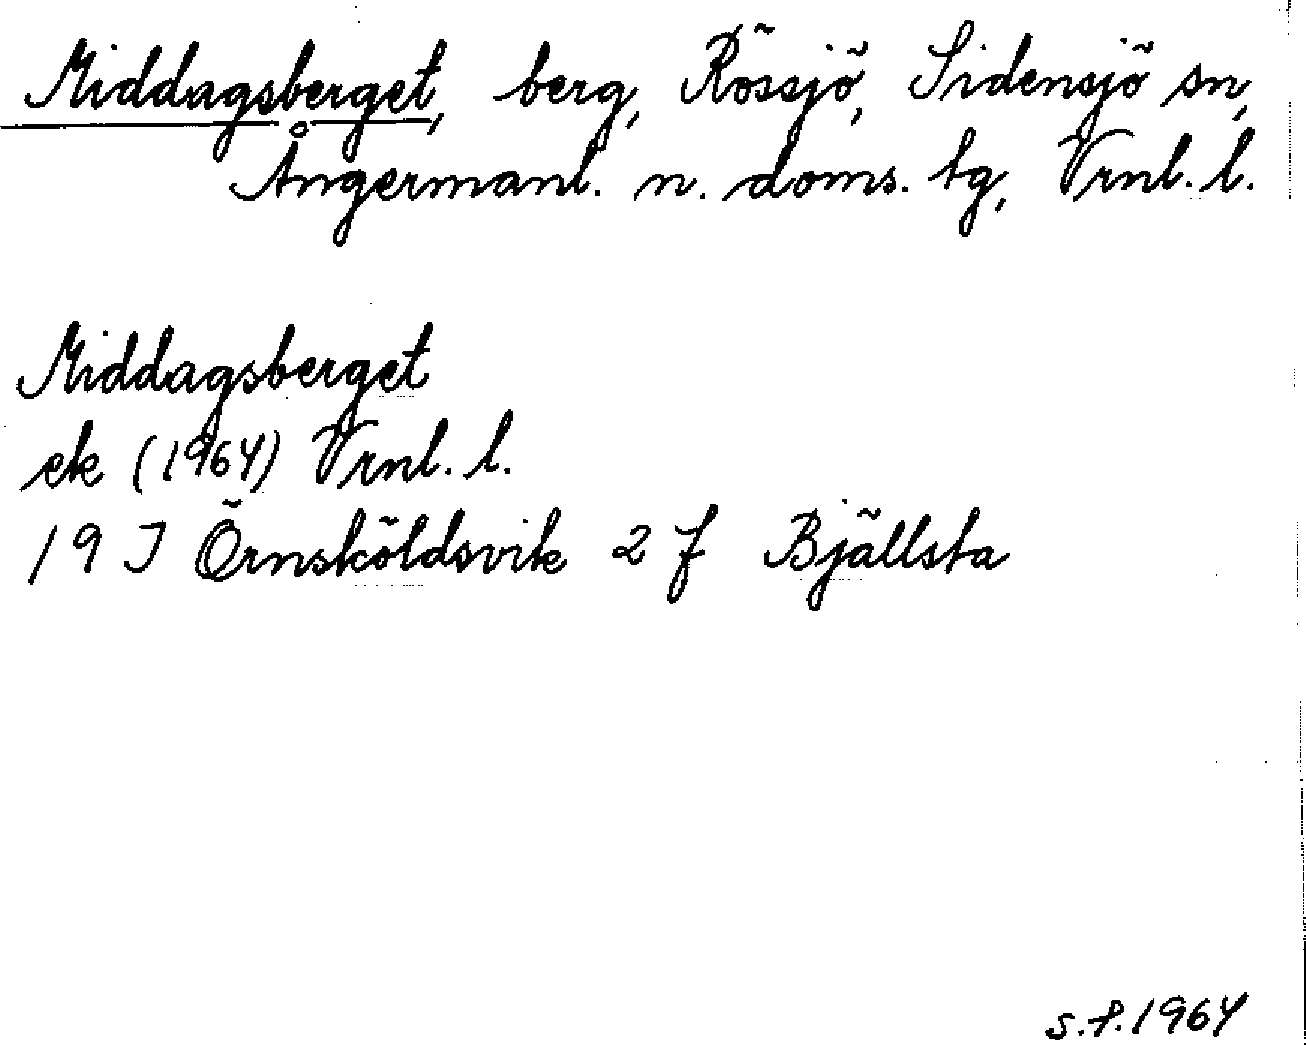 Middagsberget, berg, Rössjö, Sidensjö sn,
Ångermanl. n. doms. tg, Vrnl. l.
Middagsberget
ek (1964) Vrnl. l.
19 I Örnsköldsvik 2 f Bjällsta
s.f. 1964